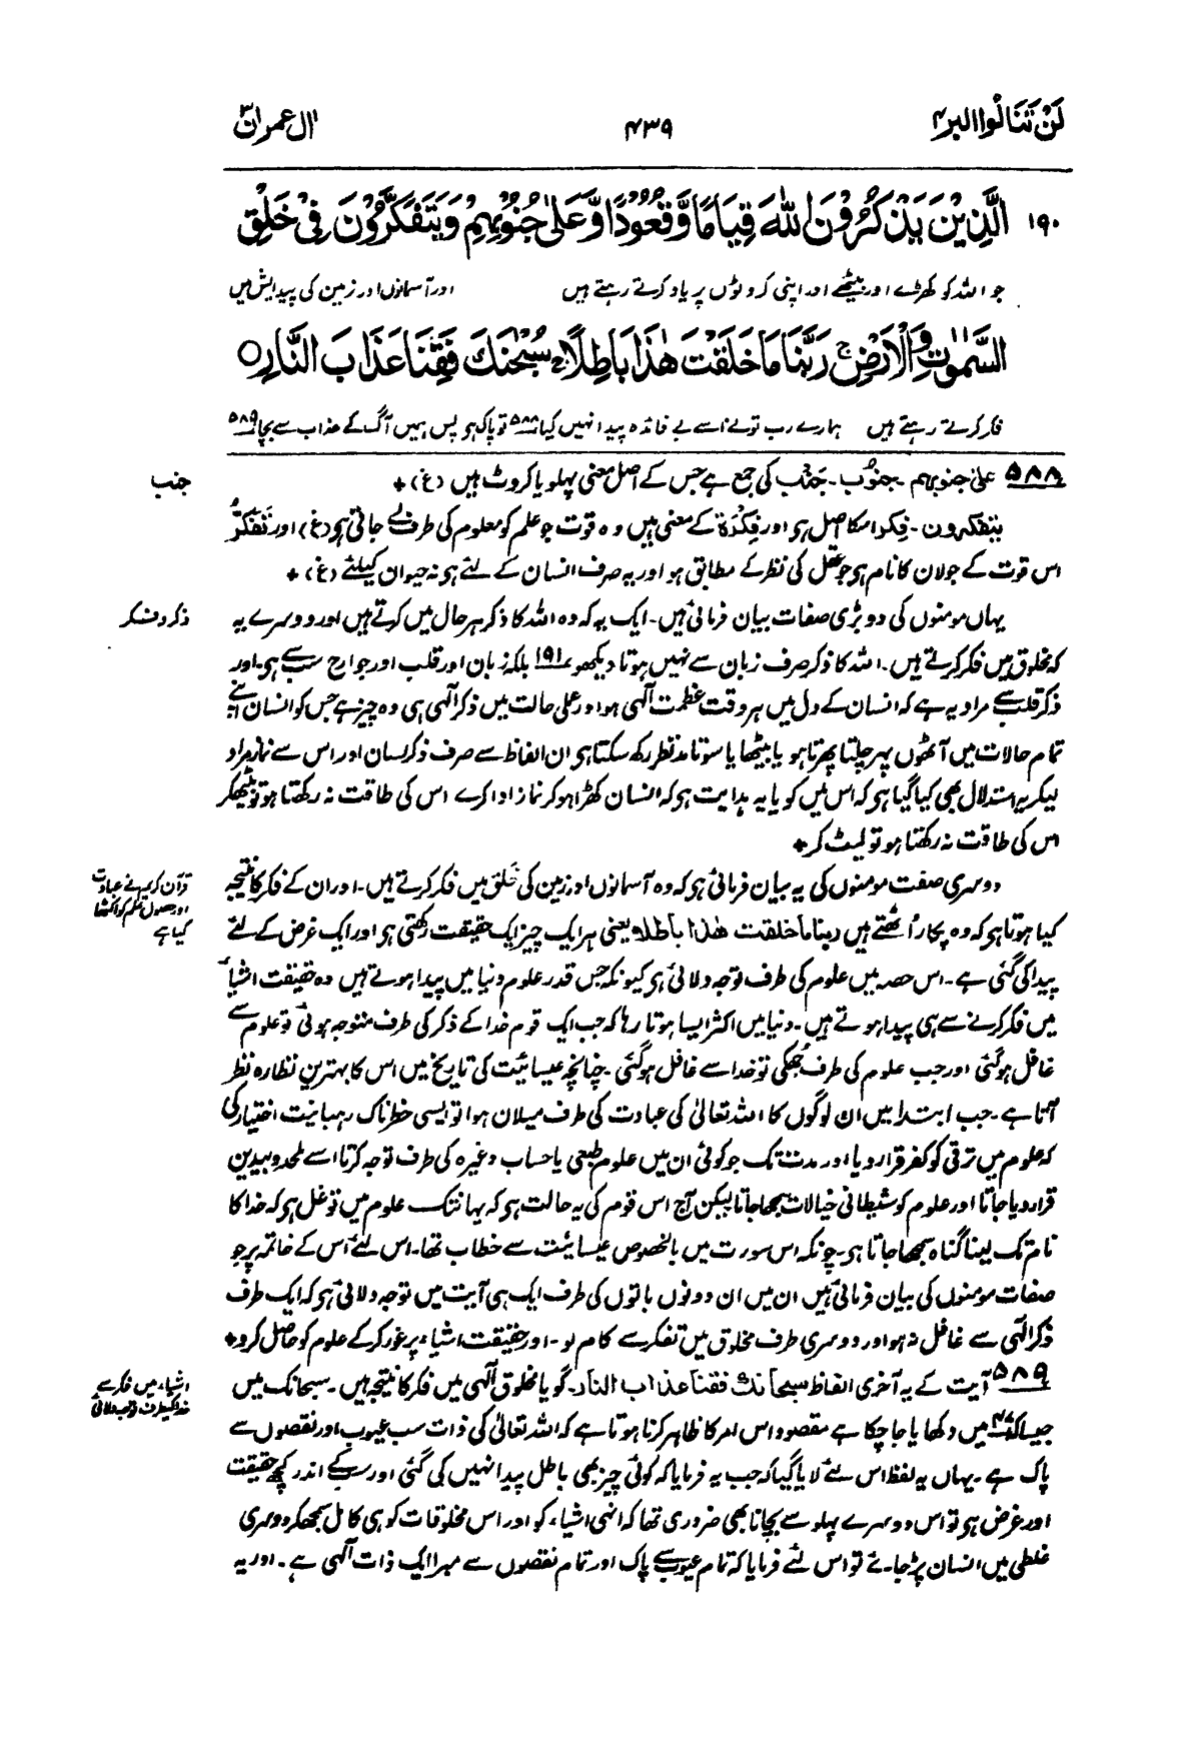 لَنْ تَنَالُوا البر ۴
۴۳۹
اٰل عمران ۳
۱۹۰ الَّذِيْنَ يَذْكُرُوْنَ اللّٰهَ قِيَامًا وَّقُعُوْدًا وَّعَلٰى جُنُوْبِهِمْ وَيَتَفَكَّرُوْنَ فِيْ خَلْقِ
جو اللہ کو کھڑے اور بیٹھے اور اپنی کروٹوں پر یاد کرتے رہتے ہیں اور آسمانوں اور زمین کی پیدایش میں
السَّمٰوٰتِ وَالْاَرْضِ ج رَبَّنَا مَا خَلَقْتَ هٰذَا بَاطِلًا ج سُبْحٰنَكَ فَقِنَا عَذَابَ النَّارِ ○
فکر کرتے رہتے ہیں ہمارے رب تو نے اسے بے فائدہ پیدا نہیں کیا ۵۸۸ تو پاک ہو پس ہمیں آگ کے عذاب سے بچا ۵۸۹
۵۸۸ علیٰ جنوبہم ۔ جنُوب ۔ جَنْب کی جمع ہے جس کے اصل معنی پہلو یا کروٹ ہیں (غ) +
جنب
یتفکرون ۔ فِکر اسکا اصل ہو اور فِکْرَۃ کے معنی ہیں وہ قوت جو علم کو معلوم کی طرف لے جاتی ہو (غ) اور تَفَکُّر
اس قوت کے جولان کا نام ہو جو عقل کی نظر کے مطابق ہو اور یہ صرف انسان کے لئے ہو نہ حیوان کیلئے (غ) +
یہاں مومنوں کی دو بڑی صفات بیان فرمائی ہیں ۔ ایک یہ کہ وہ اللہ کا ذکر ہر حال میں کرتے ہیں اور دوسرے یہ
ذکر و فکر
کہ مخلوق میں فکر کرتے ہیں ۔ اللہ کا ذکر صرف زبان سے نہیں ہوتا دیکھو ۱۹۱ بلکہ زبان اور قلب اور جوارح سب سے ہو ۔ اور
ذکر قلب سے مراد یہ ہے کہ انسان کے دل میں ہر وقت عظمت الٰہی ہو اور عملی حالت میں ذکر الٰہی ہی وہ چیز ہے جس کو انسان اپنے
تمام حالات میں آٹھوں پہر چلتا پھرتا ہو یا بیٹھا یا سوتا مدنظر رکھ سکتا ہو ان الفاظ سے صرف ذکر لسان اور اس سے نماز مراد
لیکر یہ استدلال بھی کیا گیا ہو کہ اس میں گویا یہ ہدایت ہو کہ انسان کھڑا ہو کر نماز ادا کرے اس کی طاقت نہ رکھتا ہو تو بیٹھکر
اس کی طاقت نہ رکھتا ہو تو لیٹ کر +
دوسری صفت مومنوں کی یہ بیان فرمائی ہو کہ وہ آسمانوں اور زمین کی خلق میں فکر کرتے ہیں ۔ اور ان کے فکر کا نتیجہ
قرآن کریم نے عبادت
اور حصول علم کو اکٹھا
کیا ہے
کیا ہوتا ہو کہ وہ پکار اُٹھتے ہیں ربنا ما خلقت هٰذا باطلا یعنی ہر ایک چیز ایک حقیقت رکھتی ہو اور ایک غرض کے لئے
پیدا کی گئی ہے ۔ اس حصہ میں علوم کی طرف توجہ دلائی ہو کیونکہ جس قدر علوم دنیا میں پیدا ہوتے ہیں وہ حقیقت اشیاء
میں فکر کرنے سے ہی پیدا ہوتے ہیں ۔ دنیا میں اکثر ایسا ہوتا رہا کہ جب ایک قوم خدا کے ذکر کی طرف متوجہ ہوئی تو علوم سے
غافل ہو گئی اور جب علوم کی طرف جُھکی تو خدا سے غافل ہو گئی ۔ چنانچہ عیسائیت کی تاریخ میں اس کا بہترین نظارہ نظر
آتا ہے ۔ جب ابتدا میں ان لوگوں کا اللہ تعالیٰ کی عبادت کی طرف میلان ہوا تو ایسی خطرناک رہبانیت اختیار کی
کہ علوم میں ترقی کو کفر قرار دیا اور مدت تک جو کوئی ان میں علوم طبعی یا حساب وغیرہ کی طرف توجہ کرتا اسے ملحد و بیدین
قرار دیا جاتا اور علوم کو شیطانی خیالات سمجھا جاتا لیکن آج اس قوم کی یہ حالت ہو کہ یہانتک علوم میں توغل ہو کہ خدا کا
نام تک لینا گناہ سمجھا جاتا ہو ۔ چونکہ اس سورت میں بالخصوص عیسائیت سے خطاب تھا ۔ اس لئے اس کے خاتمہ پر جو
صفات مومنوں کی بیان فرمائی ہیں ان میں ان دونوں باتوں کی طرف ایک ہی آیت میں توجہ دلائی ہو کہ ایک طرف
ذکر الٰہی سے غافل نہ ہو اور دوسری طرف مخلوق میں تفکر سے کام لو ۔ اور حقیقت اشیاء پر غور کرکے علوم کو حاصل کرو +
۵۸۹ آیت کے یہ آخری الفاظ سبحانك فقنا عذاب النار ۔ گویا مخلوق الٰہی میں فکر کا نتیجہ ہیں ۔ سبحانک میں
اشیاء میں فکر سے
خدا کیطرف توجہ دلائی
جیسا کہ میں دکھایا جا چکا ہے مقصود اس امر کا ظاہر کرنا ہوتا ہے کہ اللہ تعالیٰ کی ذات سب عیوب اور نقصوں سے
پاک ہے ۔ یہاں یہ لفظ اس لئے لایا گیا کہ جب یہ فرمایا کہ کوئی چیز بھی باطل پیدا نہیں کی گئی اور سب کے اندر کچھ حقیقت
اور غرض ہو تو اس دوسرے پہلو سے بچانا بھی ضروری تھا کہ انہی اشیاء کو اور اس مخلوقات کو ہی کامل سمجھ کر دوسری
غلطی میں انسان پڑ جائے تو اس لئے فرمایا کہ تمام عیوب سے پاک اور تمام نقصوں سے مبرا ایک ذات الٰہی ہے ۔ اور یہ